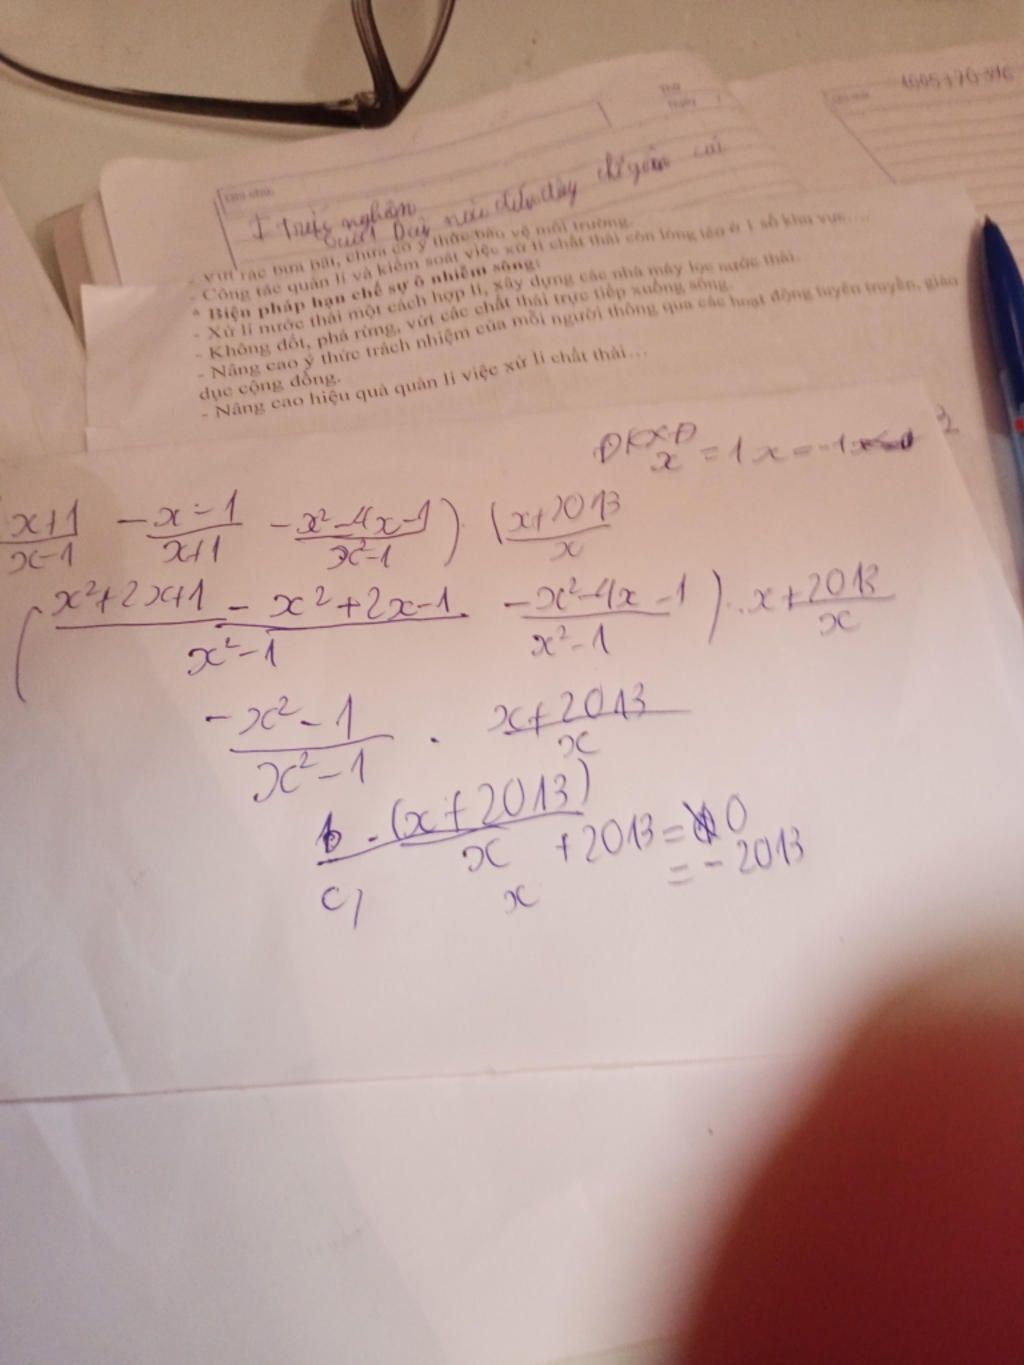 Thứ
Ngày
I trắc nghiệm
- Vứt rác bừa bãi, chưa có ý thức bảo vệ môi trường.
- Công tác quản lí và kiểm soát việc xử lí chất thải còn lỏng lẻo ở 1 số khu vực....
* Biện pháp hạn chế sự ô nhiễm sông:
- Xử lí nước thải một cách hợp lí, xây dựng các nhà máy lọc nước thải.
- Không đốt, phá rừng, vứt các chất thải trực tiếp xuống sông.
- Nâng cao ý thức trách nhiệm của mỗi người thông qua các hoạt động tuyên truyền, giáo
dục cộng đồng.
- Nâng cao hiệu quả quản lí việc xử lí chất thải...
ĐKXĐ
x = 1 x = -1
x+1/x-1 - x-1/x+1 - x²-4x-1/x²-1) . (x+2013/x
(x²+2x+1 - x²+2x-1/x²-1 - x²-4x-1/x²-1) . x+2013/x
-x²-1/x²-1 . x+2013/x
-(x+2013)/x
c) x+2013 = 0
x = -2013